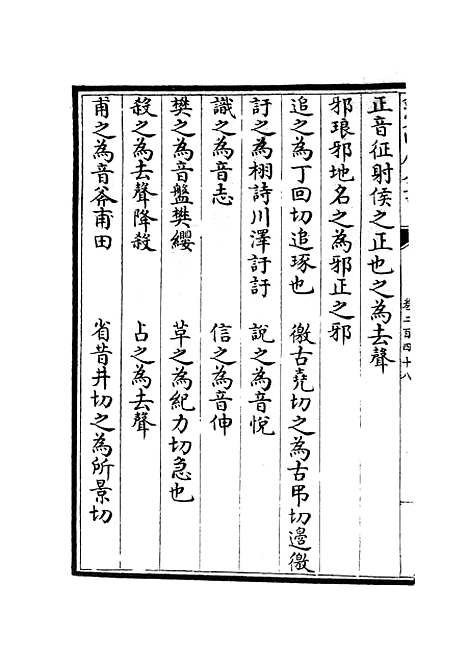 正音征射侯之正也之為去聲
邪琅邪地名之為邪正之邪
追之為丁回切追琢也　徼古堯切之為古弔切邊徼
訏之為栩詩川澤訏訏　說之為音悅
識之為音志　信之為音伸
樊之為音盤樊纓　草之為紀力切急也
殺之為去聲降殺　占之為去聲
甫之為音斧甫田　省昔井切之為所景切
卷二百四十八